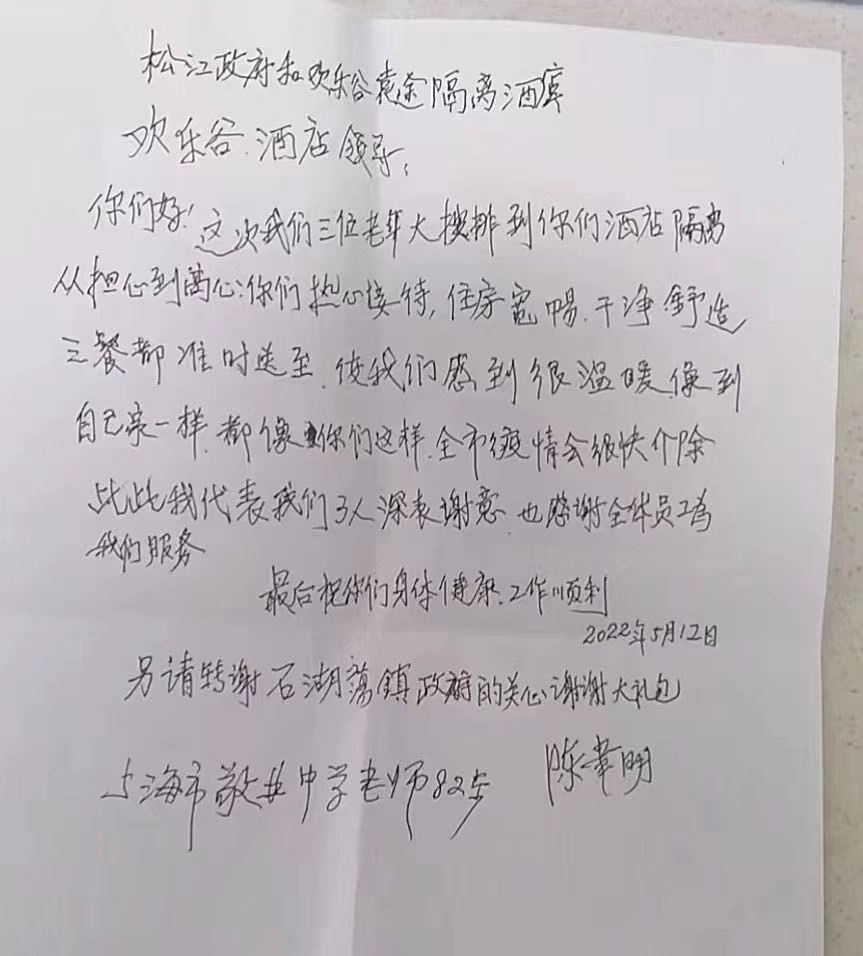 松江政府和欢乐谷隔离酒店
欢乐谷.酒店领导:
你们好!这次我们三位老年人按排到你们酒店隔离
从担心到离心:你们热心接待,住房宽畅.干净舒适
三餐都准时送至.使我们感到很温暖像到
自己家一样.都像你们这样.全市疫情会很快介除
此我代表我们3人深表谢意.也感谢全体员工为
我们服务
最后祝你们身体健康.工作顺利
2022年5月12日
另请转谢石湖荡镇政府的关心谢谢大礼包
上海市敬业中学老师82岁 陈幸明